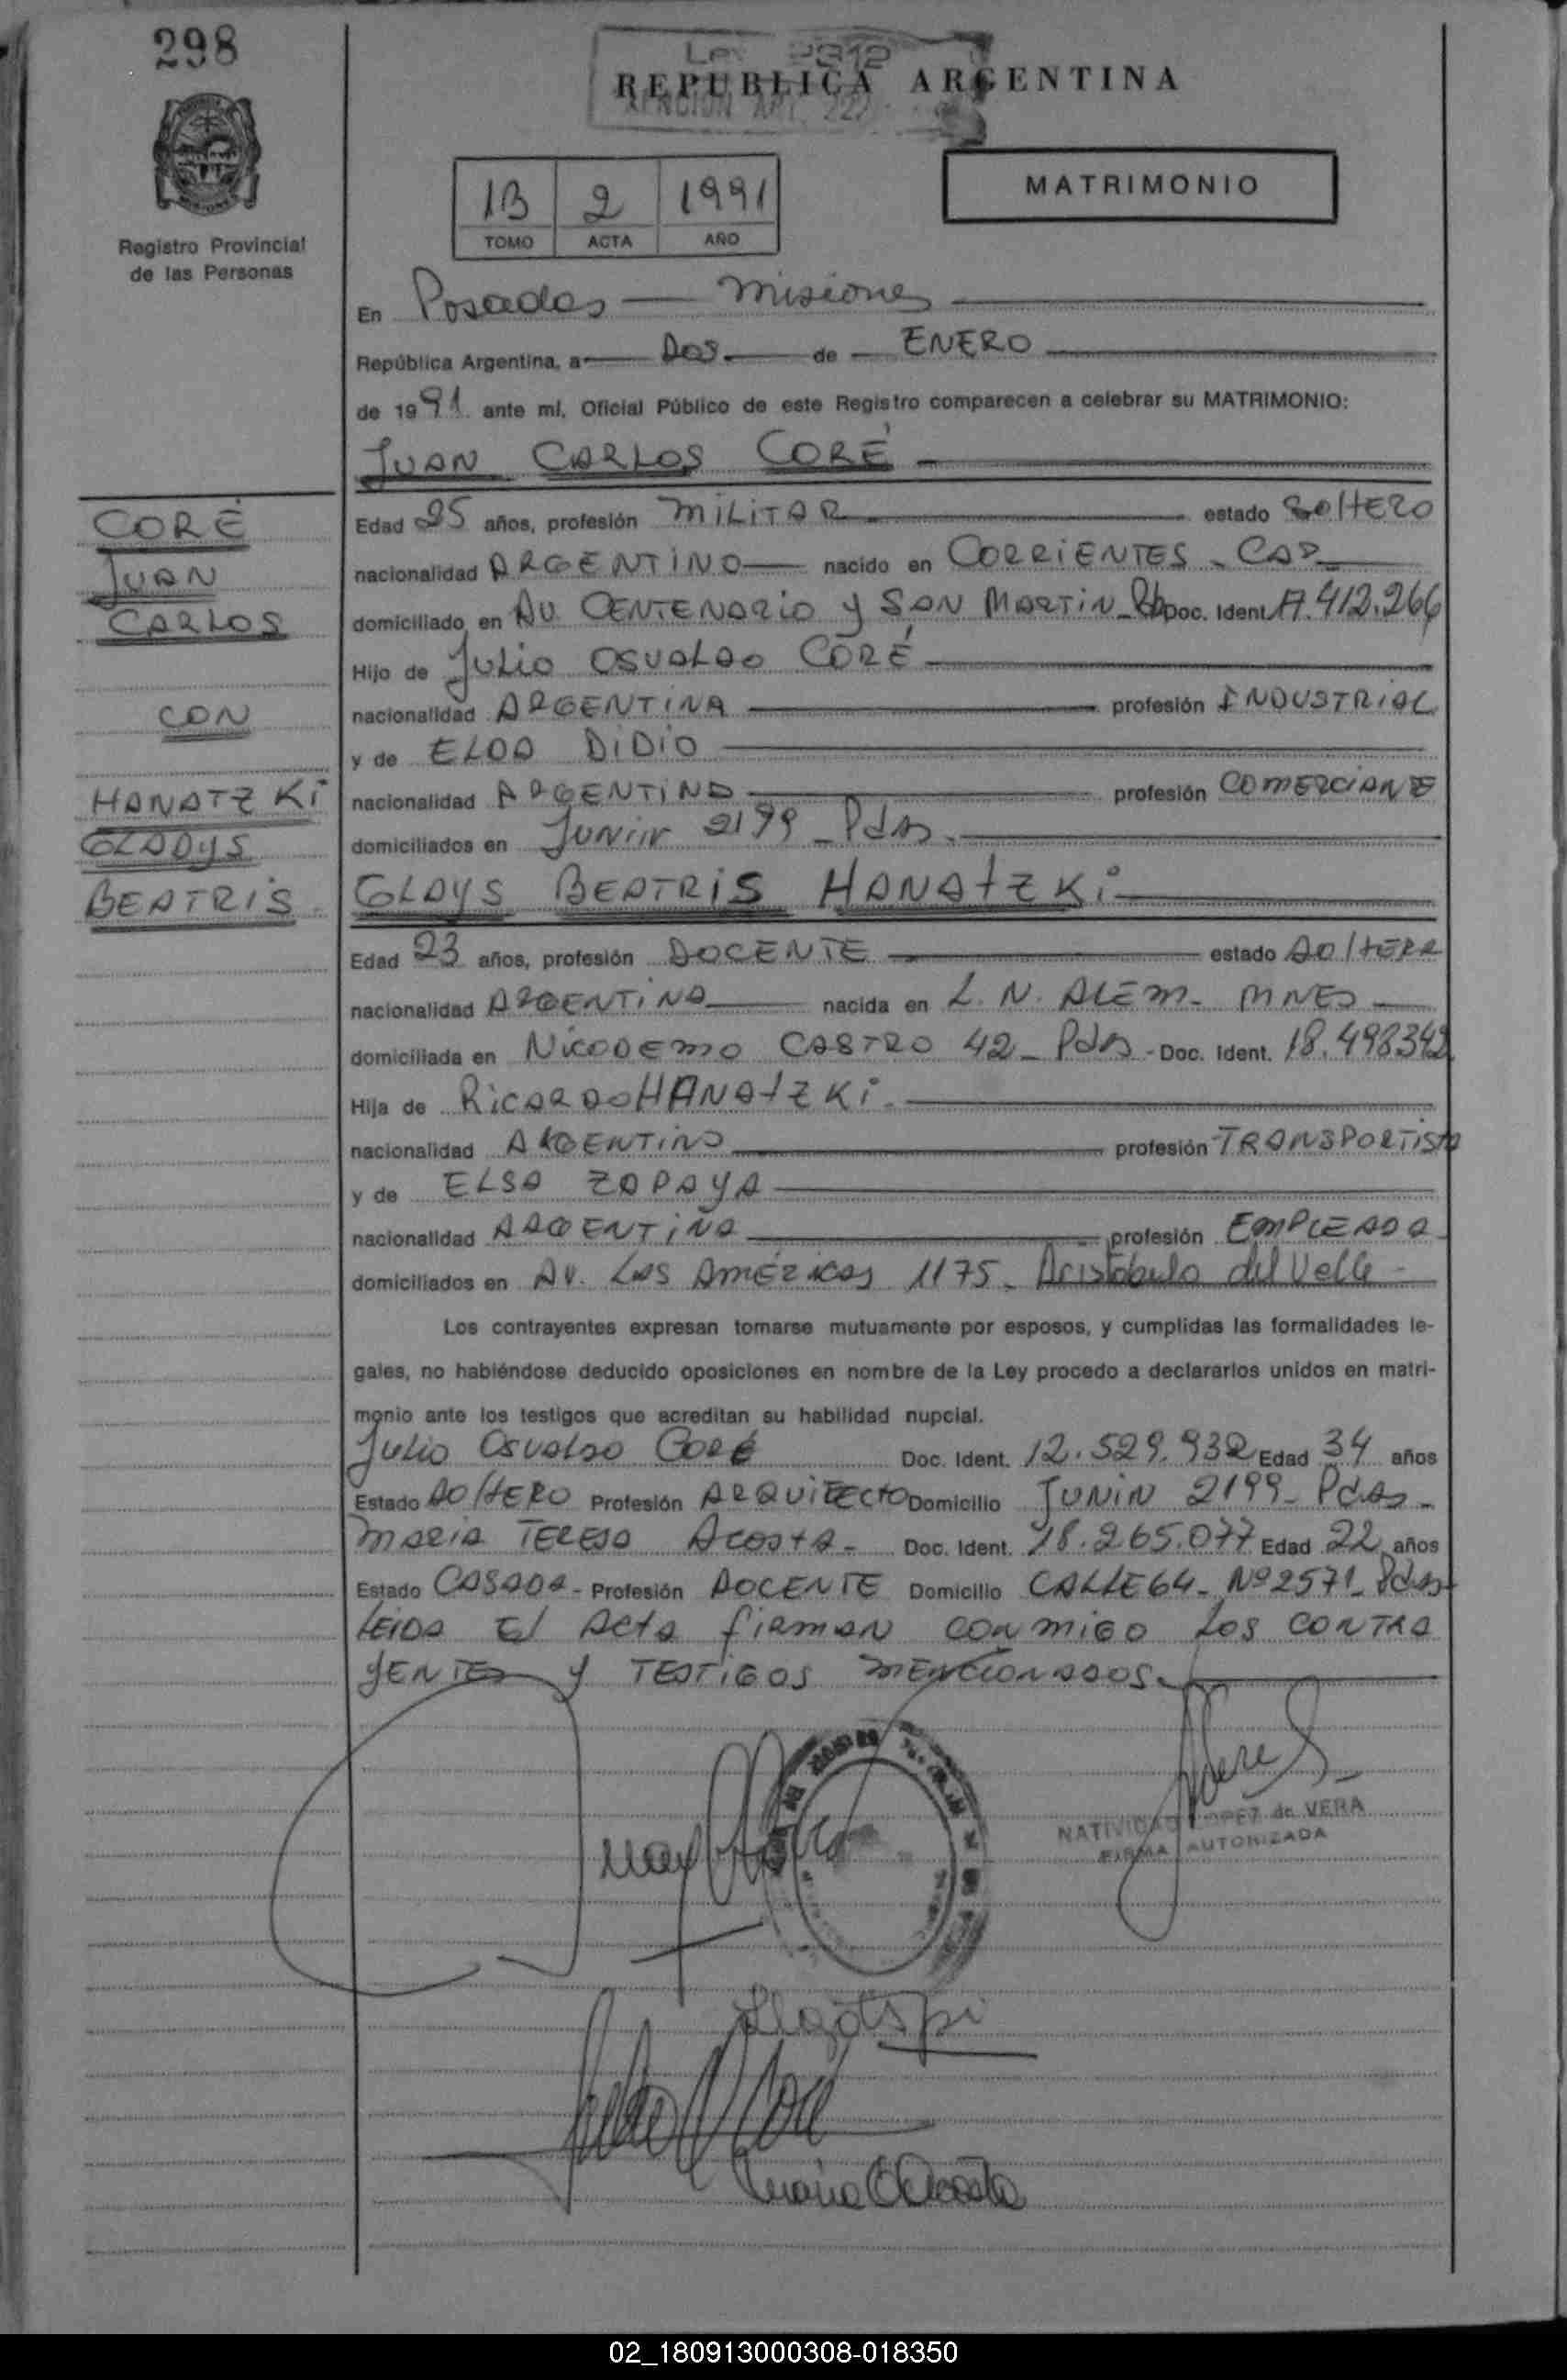 298
Ley 2312
REPUBLICA ARGENTINA
1B 2 1991
TOMO ACTA AÑO
MATRIMONIO
Registro Provincial
de las Personas
En Posadas — Misiones
República Argentina, a Dos de ENERO
de 1991 ante mí, Oficial Público de este Registro comparecen a celebrar su MATRIMONIO:
JUAN CARLOS CORÉ
CORÉ
JUAN
CARLOS
CON
HANATZKI
GLADYS
BEATRIS
Edad 25 años, profesión MILITAR estado SOLTERO
nacionalidad ARGENTINO nacido en CORRIENTES - CAP
domiciliado en AV. CENTENARIO y SAN MARTIN - Doc. Ident. 17.412.266
Hijo de JULIO OSVALDO CORÉ
nacionalidad ARGENTINA profesión INDUSTRIAL
y de ELDA DIDIO
nacionalidad ARGENTINA profesión COMERCIANTE
domiciliados en JUNIN 2199 - Pdas.
GLDYS BEATRIS HANATZKI
Edad 23 años, profesión DOCENTE estado SOLTERA
nacionalidad ARGENTINA nacida en L. N. ALEM - MNES
domiciliada en NICODEMO CASTRO 42 - Pdas - Doc. Ident. 18.498342
Hija de RICARDO HANATZKI
nacionalidad ARGENTINA profesión TRANSPORTISTA
y de ELSA ZAPAYA
nacionalidad ARGENTINA profesión EMPLEADA
domiciliados en AV. LAS AMÉRICAS 1175 - Aristóbulo del Valle
Los contrayentes expresan tomarse mutuamente por esposos, y cumplidas las formalidades le-
gales, no habiéndose deducido oposiciones en nombre de la Ley procedo a declararlos unidos en matri-
monio ante los testigos que acreditan su habilidad nupcial.
JULIO OSVALDO CORÉ Doc. Ident. 12.529.932 Edad 34 años
Estado SOLTERO Profesión ARQUITECTO Domicilio JUNIN 2199 - Pdas -
MARIA TERESA ACOSTA - Doc. Ident. 18.265.077 Edad 22 años
Estado CASADA - Profesión DOCENTE Domicilio CALLE 64 - Nº 2571 - Pdas
LEIDA El ACTA FIRMAN CONMIGO LOS CONTRA
YENTES y TESTIGOS MENCIONADOS.
NATIVIDAD LOPEZ de VERA
FIRMA AUTORIZADA
02_180913000308-018350